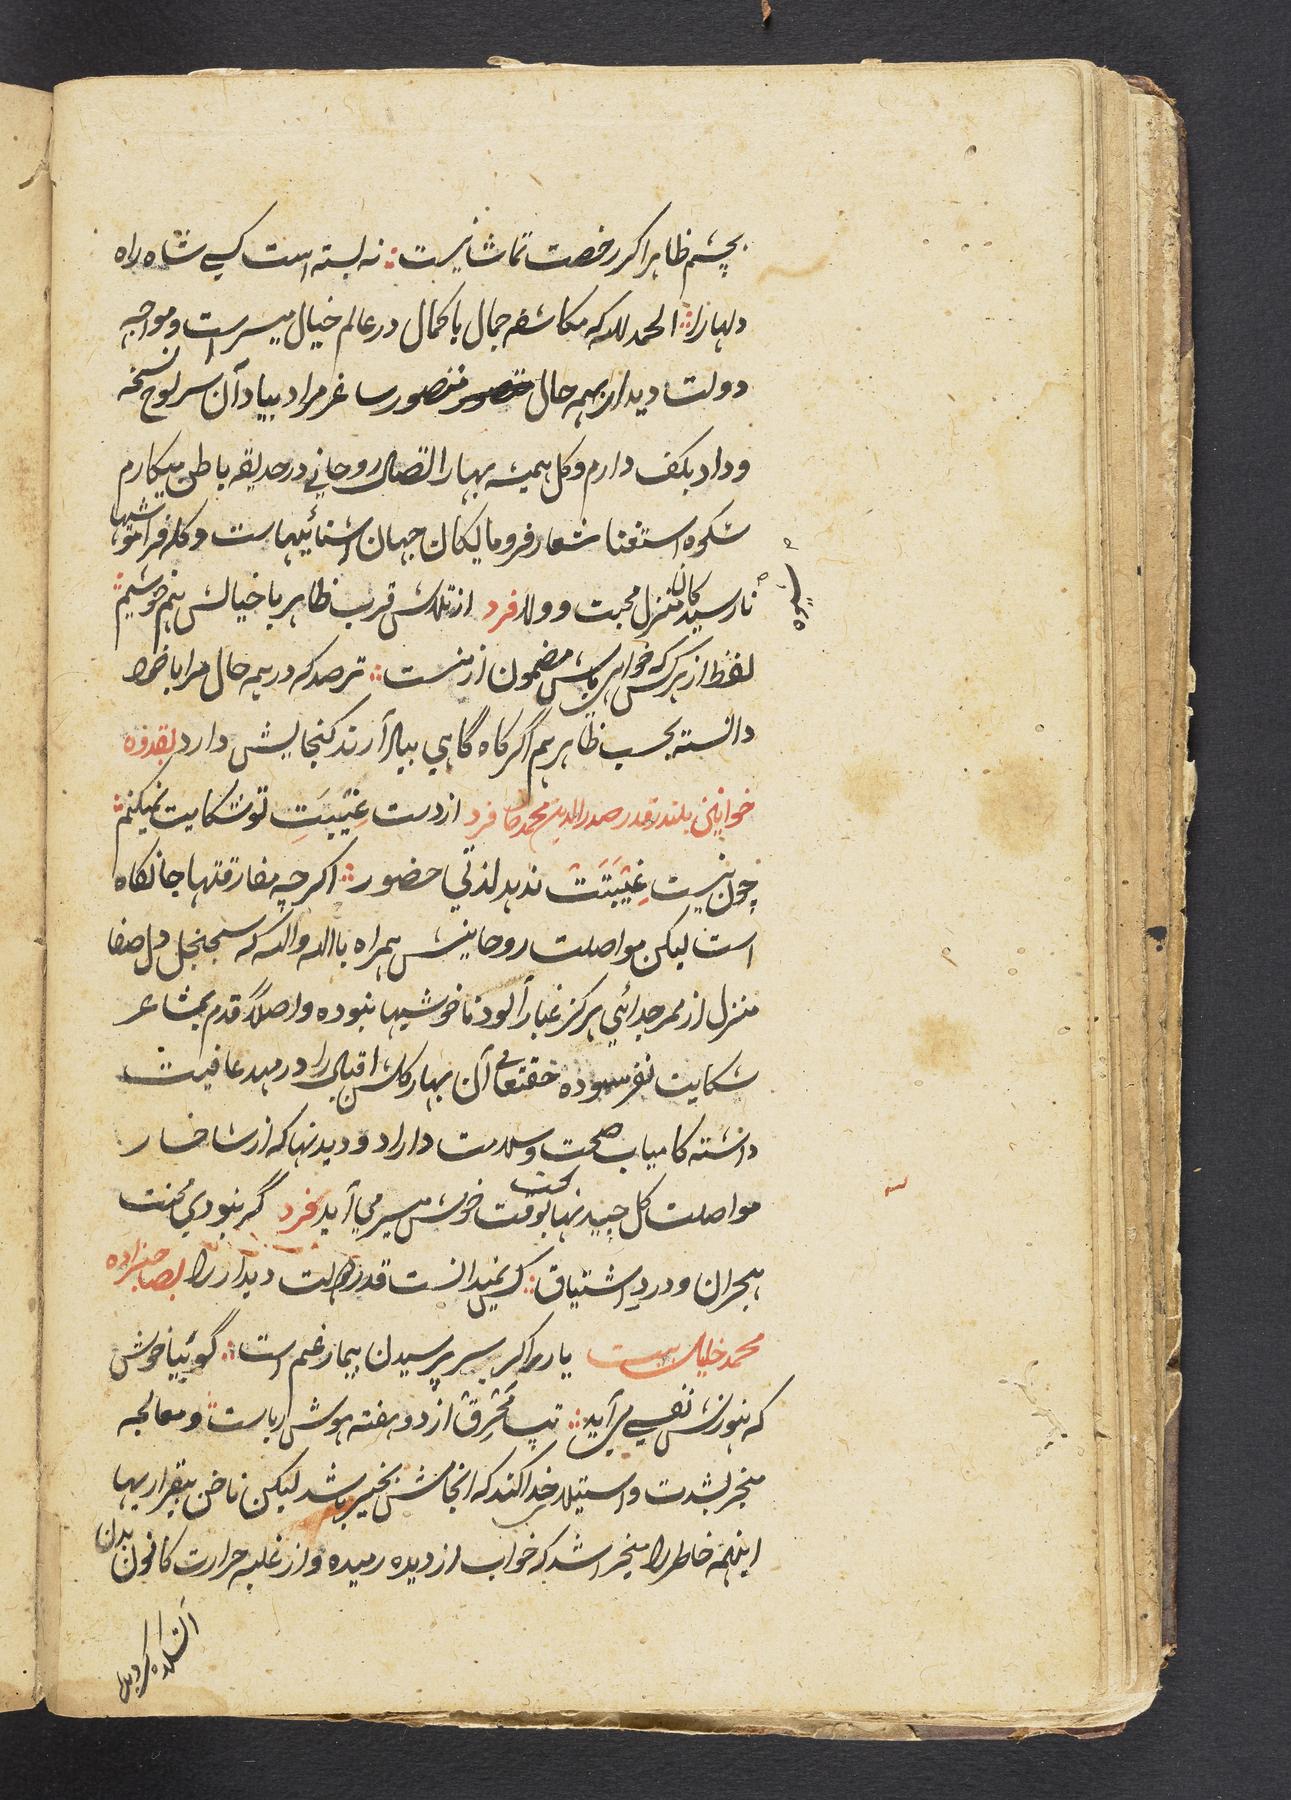 بچشم ظاهر اکر رخصت تماشا نیست ؞ نه بسته است کسی شاه راه
دلها را ؞ الحمد لله که مکاشفه جمال با کمال در عالم خیال میسر است و مواجه
دولت دیدار بهمه حال متصور ساغر مراد بیاد آن سر لوح نسخه
وداد بکف دارم و کل همیشه بهار اتصال روحانی در حدیقه باطن میکارم
شکوه استغنا شعار فرومایکان جهان اشنائیهاست و کله فراموشیها
نارسیدکان منزل محبت و ولا فرد از تلاش قرب ظاهر با خیالش هم خوشیم ؞
لفظ از هر کس که خواهی باش مضمون از منست ؞ ترصد که در همه حال مرا با خود
دانسته بحسب ظاهر هم اگر کاه گاهی بیاد آرند کنجایش دارد بقدوه
خوانین بلند قدر صدر الدین محمد خان فرد از دست غیبت تو شکایت نمیکنم ؞
چون نیست غیبتت ندهد لذتی حضور ؞ اکرچه مفارقتها جانکاه
است لیکن مواصلت روحانیش همراه بالله والله که سجنجل دل صفا
منزل از ممر جدائی هرکز غبار آلود ناخوشیها نبوده و اصلاً قدم بمشاعر
شکایت نفرسوده حقتعالی آن بهار کلشن اقبال را در مهد عافیت
داشته کامیاب صحت و سلامت داراد و دیدنها که از شاخسار
مواصلت کل چیدنهاست بوقت خوش میسر می آید فرد گر نبودی محنت
هجران و درد اشتیاق ؞ کس نمیدانست قدر دولت دیدار را بصاحبزاده
محمد خلیل یار را کر بسر پرسیدن بیمار غم است ؞ گو بیا خوش
که هنوزش نفسی می آید ؞ تب محرق از دو هفته هوش رباست و معالجه
منجر بشدت و استیلا خدا کند که انجامش بخیر باشد لیکن ناخن بیقراریها
اینهمه خاطر را منجر اشد که خواب از دیده رمیده و از غلبه حرارت کانون بدن